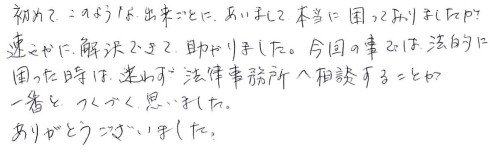 初めて、このような出来ごとに、あいまして、本当に困っておりましたが
速やかに解決できて、助かりました。今回の事では、法的に
困った時は、迷わず法律事務所へ相談することが
一番と、つくづく思いました。
ありがとうございました。